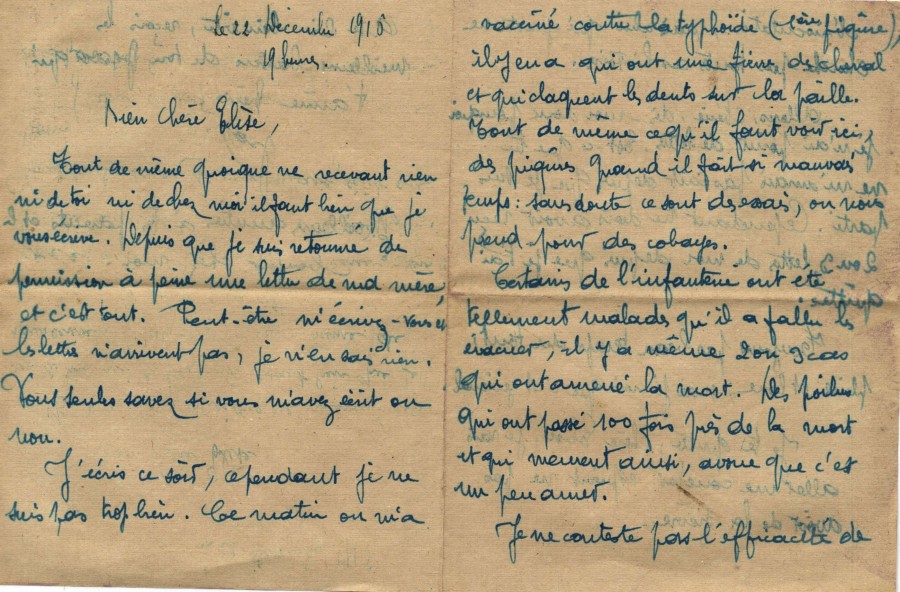 le 22 Décembre 1916
19 heures.
Bien chère Elise,
Tout de même quoique ne recevant rien
ni de toi ni de chez moi il faut bien que je
vous écrive. Depuis que je suis retourné de
permission à peine une lettre de ma mère,
et c'est tout. Peut-être m'écrivez-vous et
les lettres n'arrivent pas, je n'en sais rien.
Vous seules savez si vous m'avez écrit ou
non.
J'écris ce soir, cependant je ne
suis pas trop bien. Ce matin on m'a
vacciné contre la typhoïde (1ère piqûre),
il y en a qui ont une fièvre de cheval
et qui claquent les dents sur la paille.
Tout de même ce qu'il faut voir ici,
des piqûres quand il fait si mauvais
temps : sans doute ce sont des essais, on nous
prend pour des cobayes.
Certains de l'infanterie ont été
tellement malades qu'il a fallu les
évacuer, il y a même 2 ou 3 cas
qui ont amené la mort. Des poilus
qui ont passé 100 fois près de la mort
et qui meurent ainsi, avoue que c'est
un peu amer.
Je ne conteste pas l'efficacité de